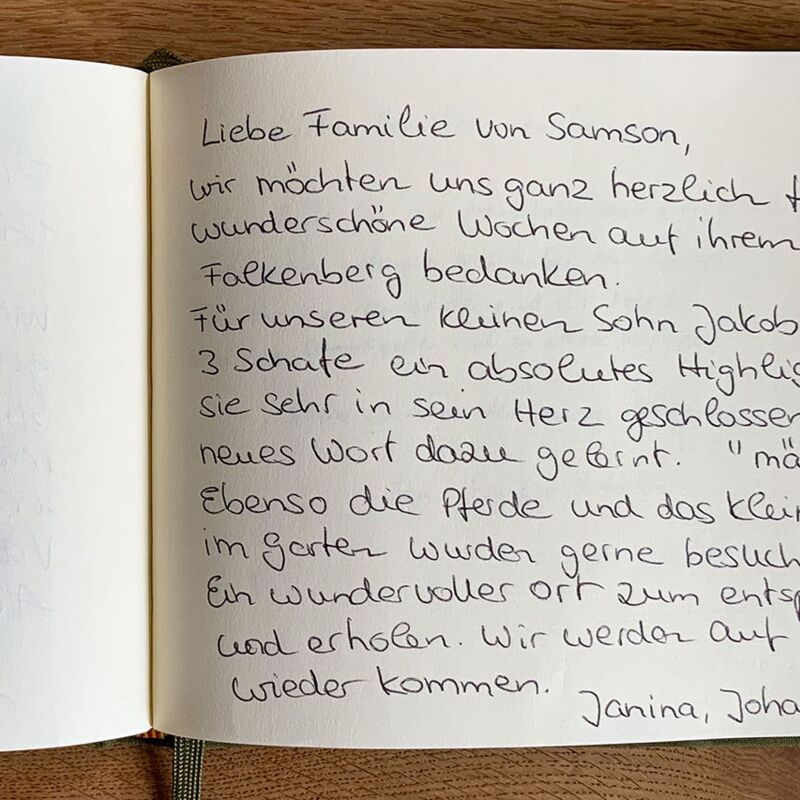 Liebe Familie von Samson,
wir möchten uns ganz herzlich
wunderschöne Wochen auf ihrem
Falkenberg bedanken.
Für unseren kleinen Sohn Jakob
3 Schafe ein absolutes Highlig
sie sehr in sein Herz geschlossen
neues Wort dazu gelernt. "mä
Ebenso die Pferde und das klein
im Garten wurden gerne besuch
Ein wundervoller Ort zum entsp
und erholen. Wir werden auf
wieder kommen.
Janina, Joha